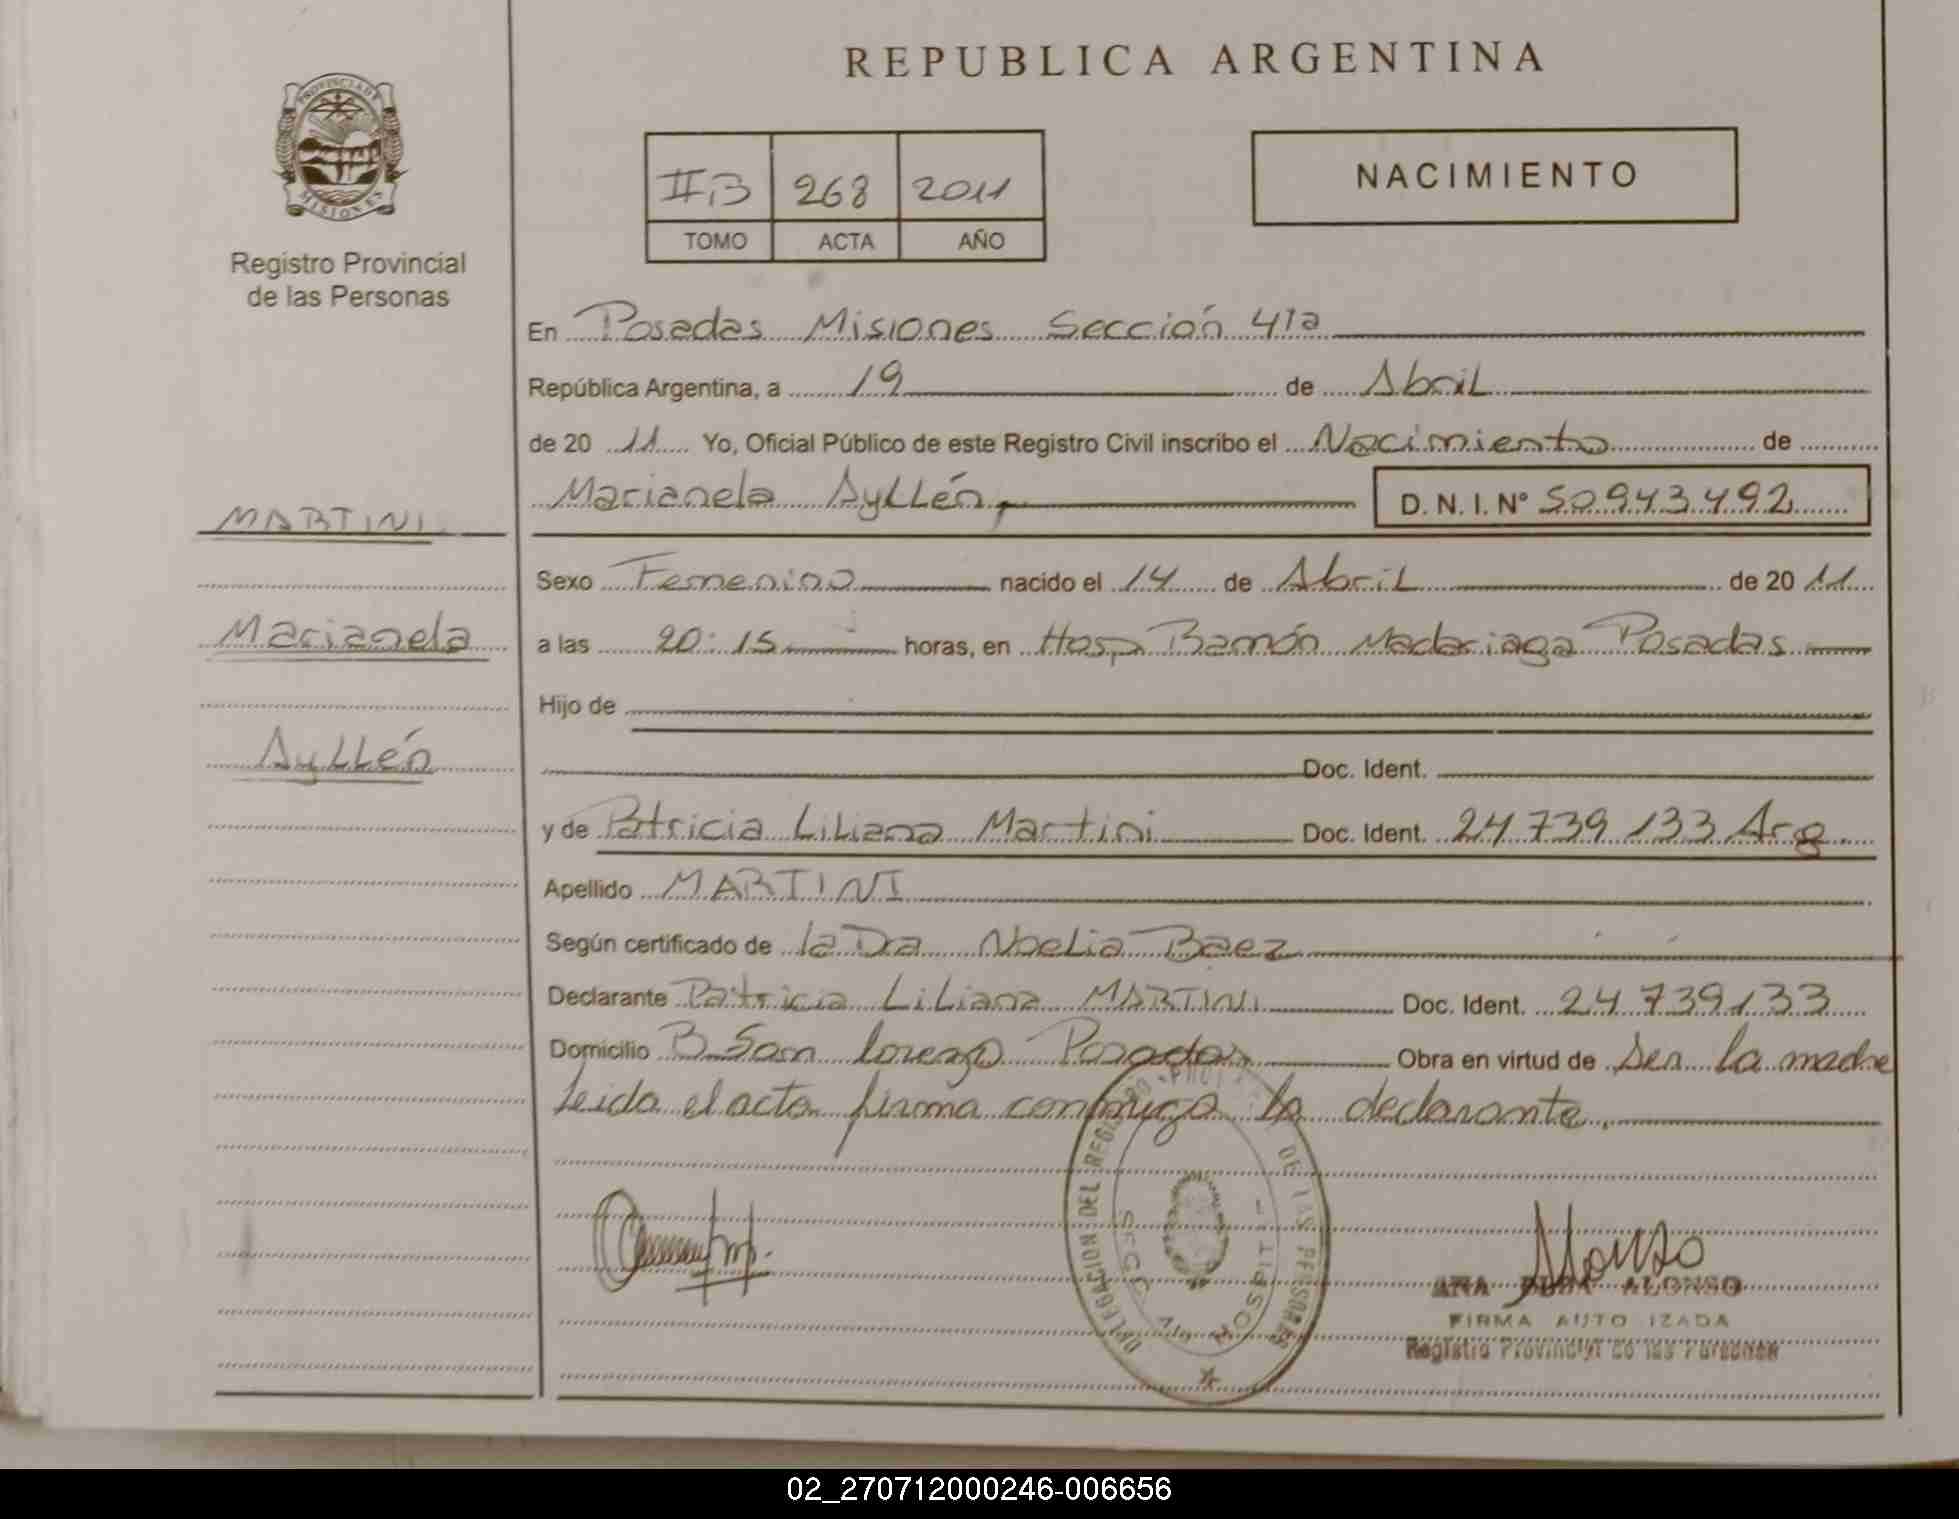 REPUBLICA ARGENTINA
PROVINCIA DE
MISIONES
Registro Provincial
de las Personas
IIB 268 2011
TOMO ACTA AÑO
NACIMIENTO
En Posadas Misiones Sección 41a
República Argentina, a 19 de Abril
de 20 11 Yo, Oficial Público de este Registro Civil inscribo el Nacimiento de
Marianela Ayllén, D. N. I. Nº 50943492
MARTINI
Sexo Femenino nacido el 14 de Abril de 20 11
Marianela
a las 20:15 horas, en Hosp Ramón Madariaga Posadas
Hijo de
Ayllén
Doc. Ident.
y de Patricia Liliana Martini Doc. Ident. 24.739.133 Arg.
Apellido MARTINI
Según certificado de la Dra Noelia Baez
Declarante Patricia Liliana MARTINI Doc. Ident. 24.739.133
Domicilio B San Lorenzo Posadas Obra en virtud de Ser la madre
Leida el acta firma conmigo la declarante.
DELEGACION DEL REGISTRO DE LAS PERSONAS
SECC
Alonso
ANA ALONSO
FIRMA AUTO IZADA
Registro Provincial de las Personas
02_270712000246-006656